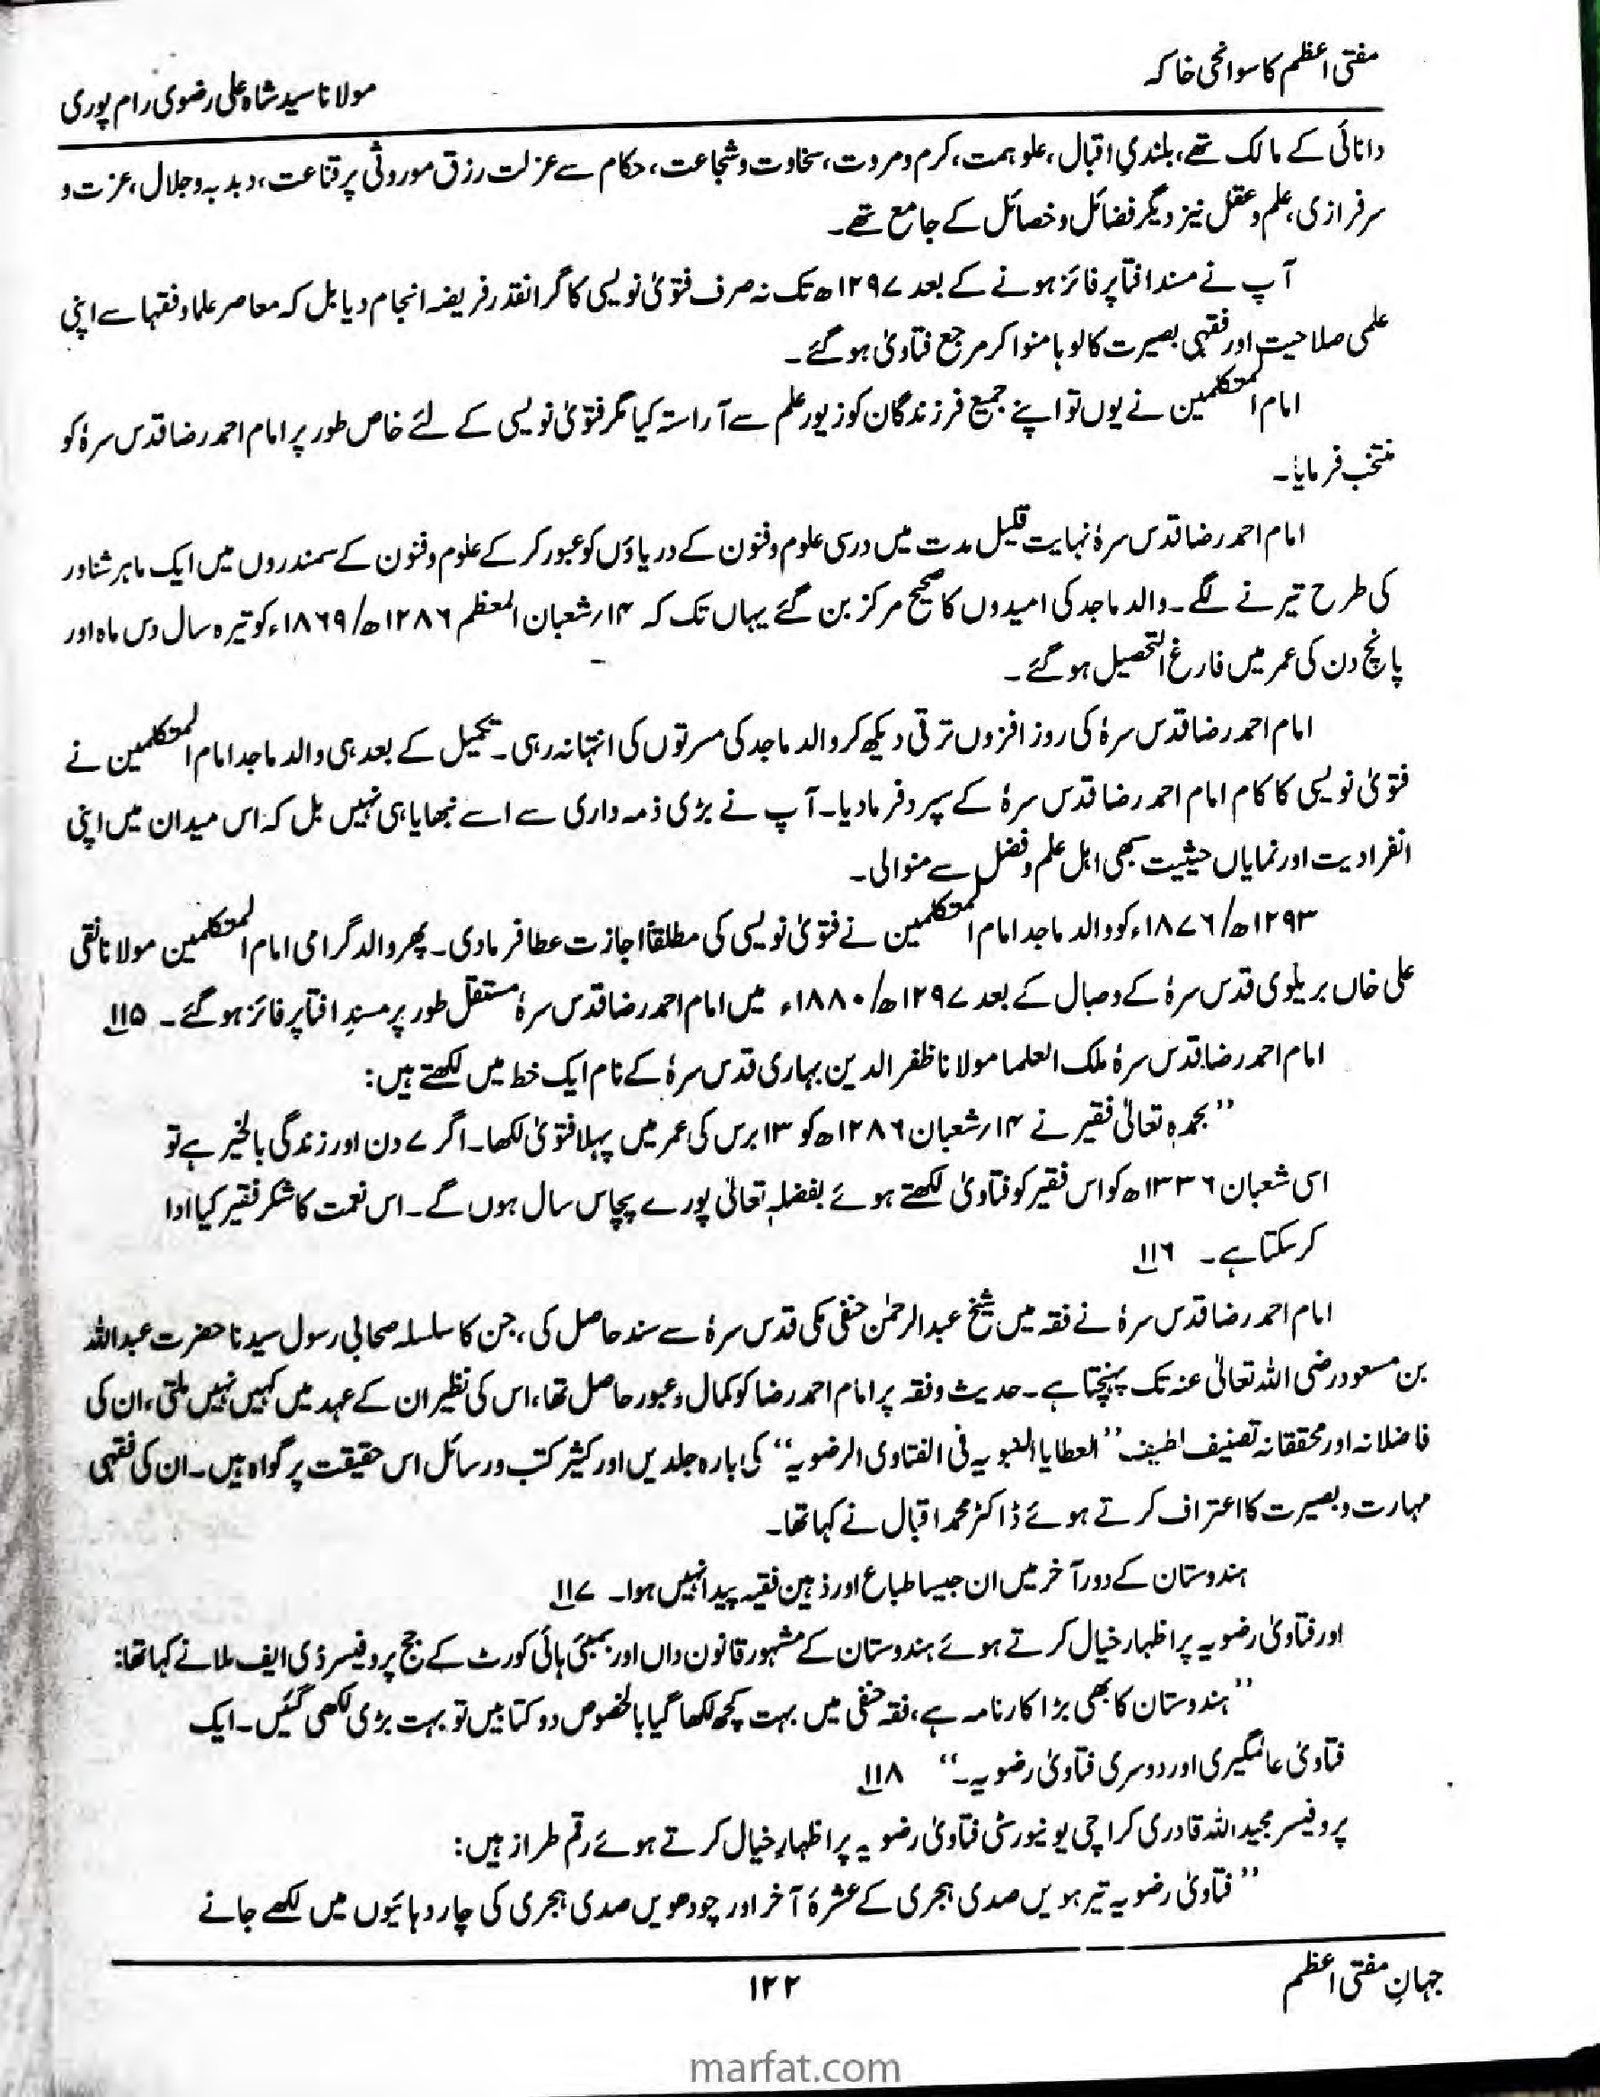 مفتی اعظم کا سوانحی خاکہ
مولانا سید شاہ علی رضوی رام پوری
دانائی کے مالک تھے، بلندیِ اقبال، علو ہمت، کرم و مروت، سخاوت و شجاعت، حکام سے عزلت رزق موروثی پر قناعت، دبدبہ و جلال، عزت و
سرفرازی، علم و عقل نیز دیگر فضائل و خصائل کے جامع تھے۔
آپ نے مسند افتا پر فائز ہونے کے بعد ۱۲۹۷ھ تک نہ صرف فتویٰ نویسی کا گرانقدر فریضہ انجام دیا بل کہ معاصر علما و فقہا سے اپنی
علمی صلاحیت اور فقہی بصیرت کا لوہا منوا کر مرجع فتاویٰ ہو گئے۔
امام المتکلمین نے یوں تو اپنے جمیع فرزندگان کو زیور علم سے آراستہ کیا مگر فتویٰ نویسی کے لئے خاص طور پر امام احمد رضا قدس سرہٗ کو
منتخب فرمایا۔
امام احمد رضا قدس سرہٗ نہایت قلیل مدت میں درسی علوم و فنون کے دریاؤں کو عبور کر کے علوم و فنون کے سمندروں میں ایک ماہر شناور
کی طرح تیرنے لگے۔ والد ماجد کی امیدوں کا صحیح مرکز بن گئے یہاں تک کہ ۱۴؍ شعبان المعظم ۱۲۸۶ھ/۱۸۶۹ء کو تیرہ سال دس ماہ اور
پانچ دن کی عمر میں فارغ التحصیل ہو گئے۔
امام احمد رضا قدس سرہٗ کی روز افزوں ترقی دیکھ کر والد ماجد کی مسرتوں کی انتہا نہ رہی۔ تکمیل کے بعد ہی والد ماجد امام المتکلمین نے
فتویٰ نویسی کا کام امام احمد رضا قدس سرہٗ کے سپرد فرما دیا۔ آپ نے بڑی ذمہ داری سے اسے نبھایا ہی نہیں بل کہ اس میدان میں اپنی
انفرادیت اور نمایاں حیثیت سبھی اہل علم و فضل سے منوالی۔
۱۲۹۳ھ/۱۸۷۶ء کو والد ماجد امام المتکلمین نے فتویٰ نویسی کی مطلقاً اجازت عطا فرما دی۔ پھر والد گرامی امام المتکلمین مولانا نقی
علی خاں بریلوی قدس سرہٗ کے وصال کے بعد ۱۲۹۷ھ/۱۸۸۰ء میں امام احمد رضا قدس سرہٗ مستقل طور پر مسندِ افتا پر فائز ہو گئے۔ ۱۱۵
امام احمد رضا قدس سرہٗ ملک العلما مولانا ظفر الدین بہاری قدس سرہٗ کے نام ایک خط میں لکھتے ہیں:
”بحمدہٖ تعالیٰ فقیر نے ۱۴؍ شعبان ۱۲۸۶ھ کو ۱۳ برس کی عمر میں پہلا فتویٰ لکھا۔ اگر ۷ دن اور زندگی بالخیر ہے تو
اسی شعبان ۱۳۳۶ھ کو اس فقیر کو فتاویٰ لکھتے ہوئے بفضلہٖ تعالیٰ پورے پچاس سال ہوں گے۔ اس نعمت کا شکر فقیر کیا ادا
کر سکتا ہے۔ ۱۱۶
امام احمد رضا قدس سرہٗ نے فقہ میں شیخ عبدالرحمٰن حنفی مکی قدس سرہٗ سے سند حاصل کی، جن کا سلسلہ صحابی رسول سیدنا حضرت عبداللہ
بن مسعود رضی اللہ تعالیٰ عنہ تک پہنچتا ہے۔ حدیث و فقہ پر امام احمد رضا کو کمال و عبور حاصل تھا، اس کی نظیر ان کے عہد میں کہیں نہیں ملتی، ان کی
فاضلانہ اور محققانہ تصنیف لطیف ”العطایا النبویہ فی الفتاوی الرضویہ“ کی بارہ جلدیں اور کثیر کتب و رسائل اس حقیقت پر گواہ ہیں۔ ان کی فقہی
مہارت و بصیرت کا اعتراف کرتے ہوئے ڈاکٹر محمد اقبال نے کہا تھا۔
ہندوستان کے دور آخر میں ان جیسا طباع اور ذہین فقیہ پیدا نہیں ہوا۔ ۱۱۷
اور فتاویٰ رضویہ پر اظہار خیال کرتے ہوئے ہندوستان کے مشہور قانون داں اور بمبئی ہائی کورٹ کے جج پروفیسر ڈی ایف ملا نے کہا تھا:
”ہندوستان کا بھی بڑا کارنامہ ہے، فقہ حنفی میں بہت کچھ لکھا گیا بالخصوص دو کتابیں تو بہت بڑی لکھی گئیں۔ ایک
فتاویٰ عالمگیری اور دوسری فتاویٰ رضویہ۔“ ۱۱۸
پروفیسر مجید اللہ قادری کراچی یونیورسٹی فتاویٰ رضویہ پر اظہارِ خیال کرتے ہوئے رقم طراز ہیں:
”فتاویٰ رضویہ تیرہویں صدی ہجری کے عشرۂ آخر اور چودھویں صدی ہجری کی چار دہائیوں میں لکھے جانے
جہانِ مفتی اعظم
۱۲۲
marfat.com